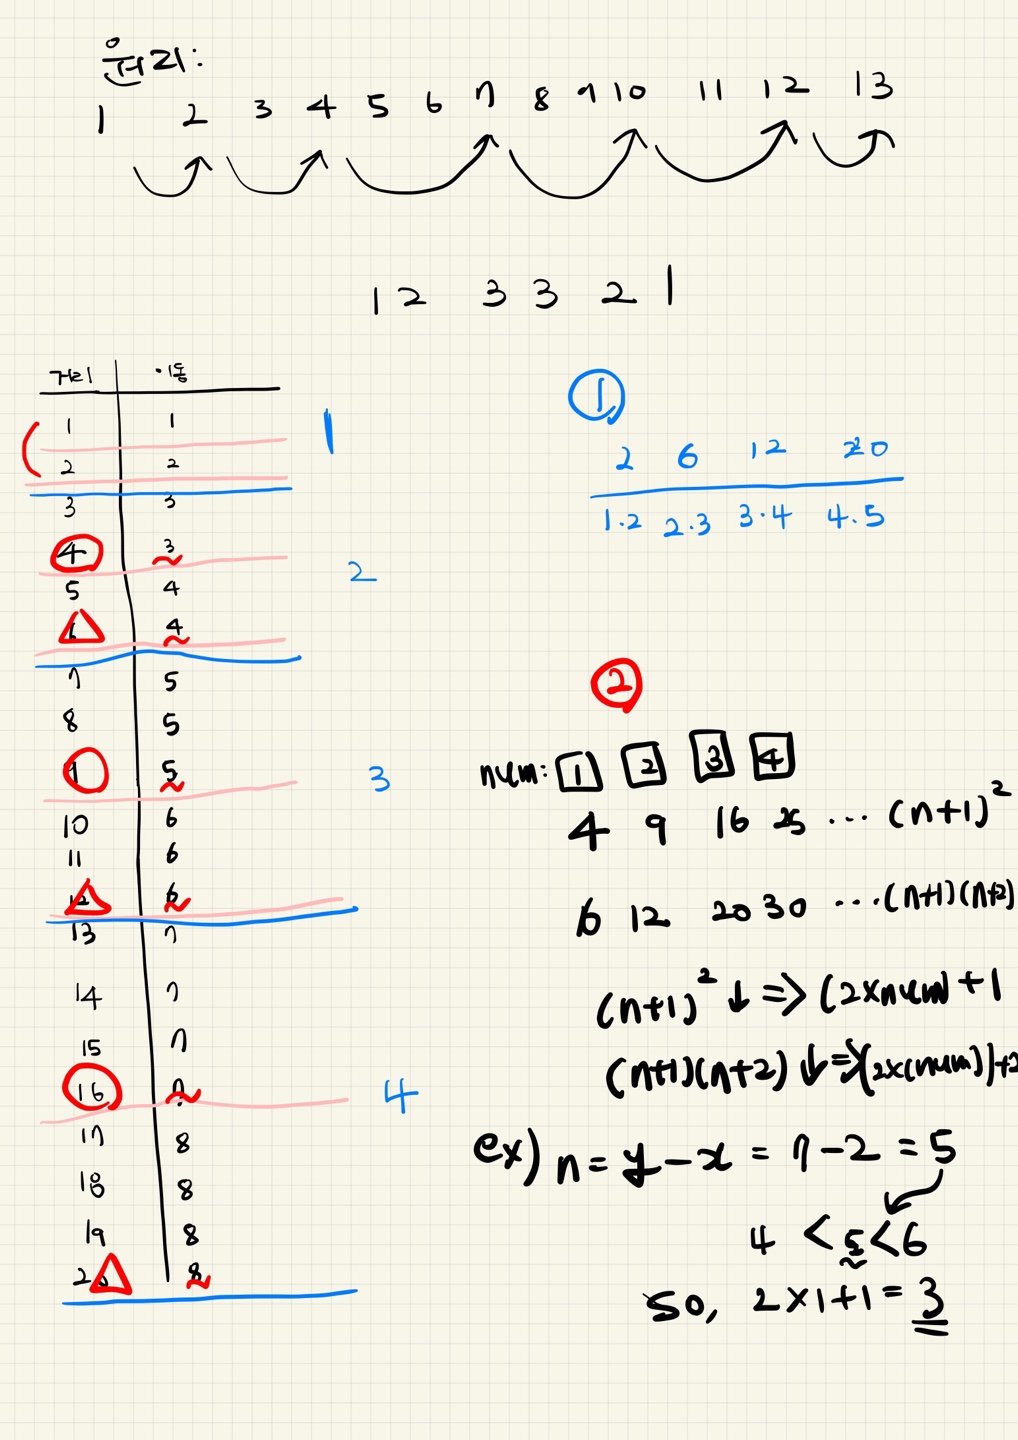 원리:
1 2 3 4 5 6 7 8 9 10 11 12 13
1 2 3 3 2 1
거리 이동
1 1
2 2
1
3 3
4 3
5 4
6 4
2
7 5
8 5
9 5
10 6
11 6
12 6
3
13 7
14 7
15 7
16 7
17 8
18 8
19 8
20 8
4
①
2 6 12 20
1·2 2·3 3·4 4·5
②
num: 1 2 3 4
4 9 16 25 ... (n+1)²
6 12 20 30 ... (n+1)(n+2)
(n+1)² ↓ => (2×num)+1
(n+1)(n+2) ↓ => (2×(num))+2
ex) n = y - x = 7 - 2 = 5
4 < 5 < 6
so, 2×1+1 = 3